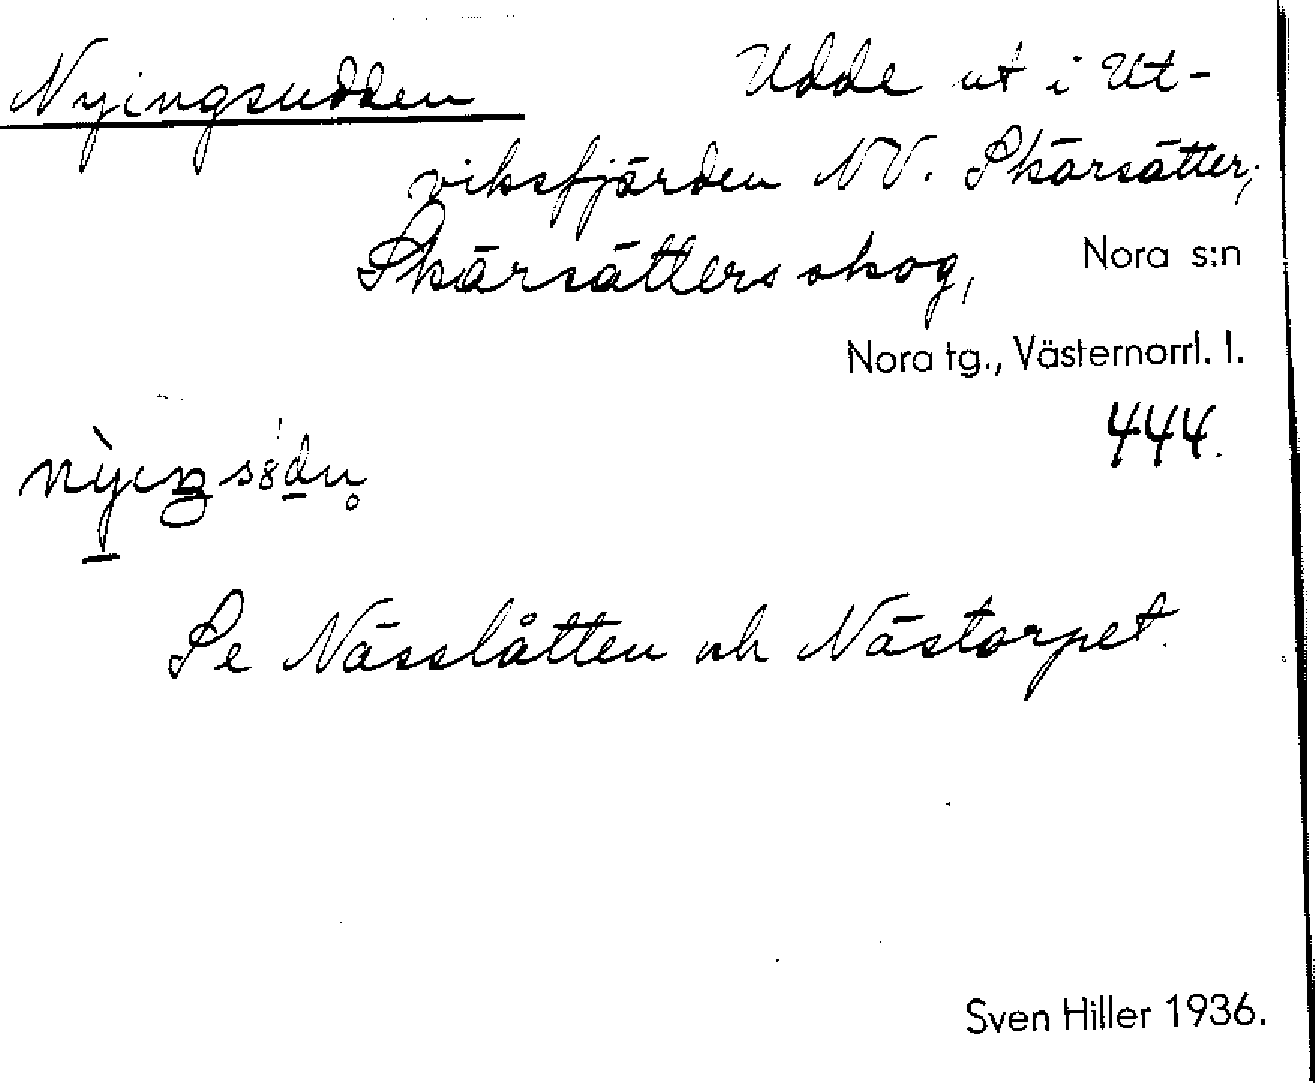 Nyingsudden Udde ut i Ut-
viksfjärden NV. Skärsätter,
Skärsätters skog, Nora s:n
Nora tg., Västernorrl. l.
444.
Se Nässlåtten och Nästorpet.
Sven Hiller 1936.